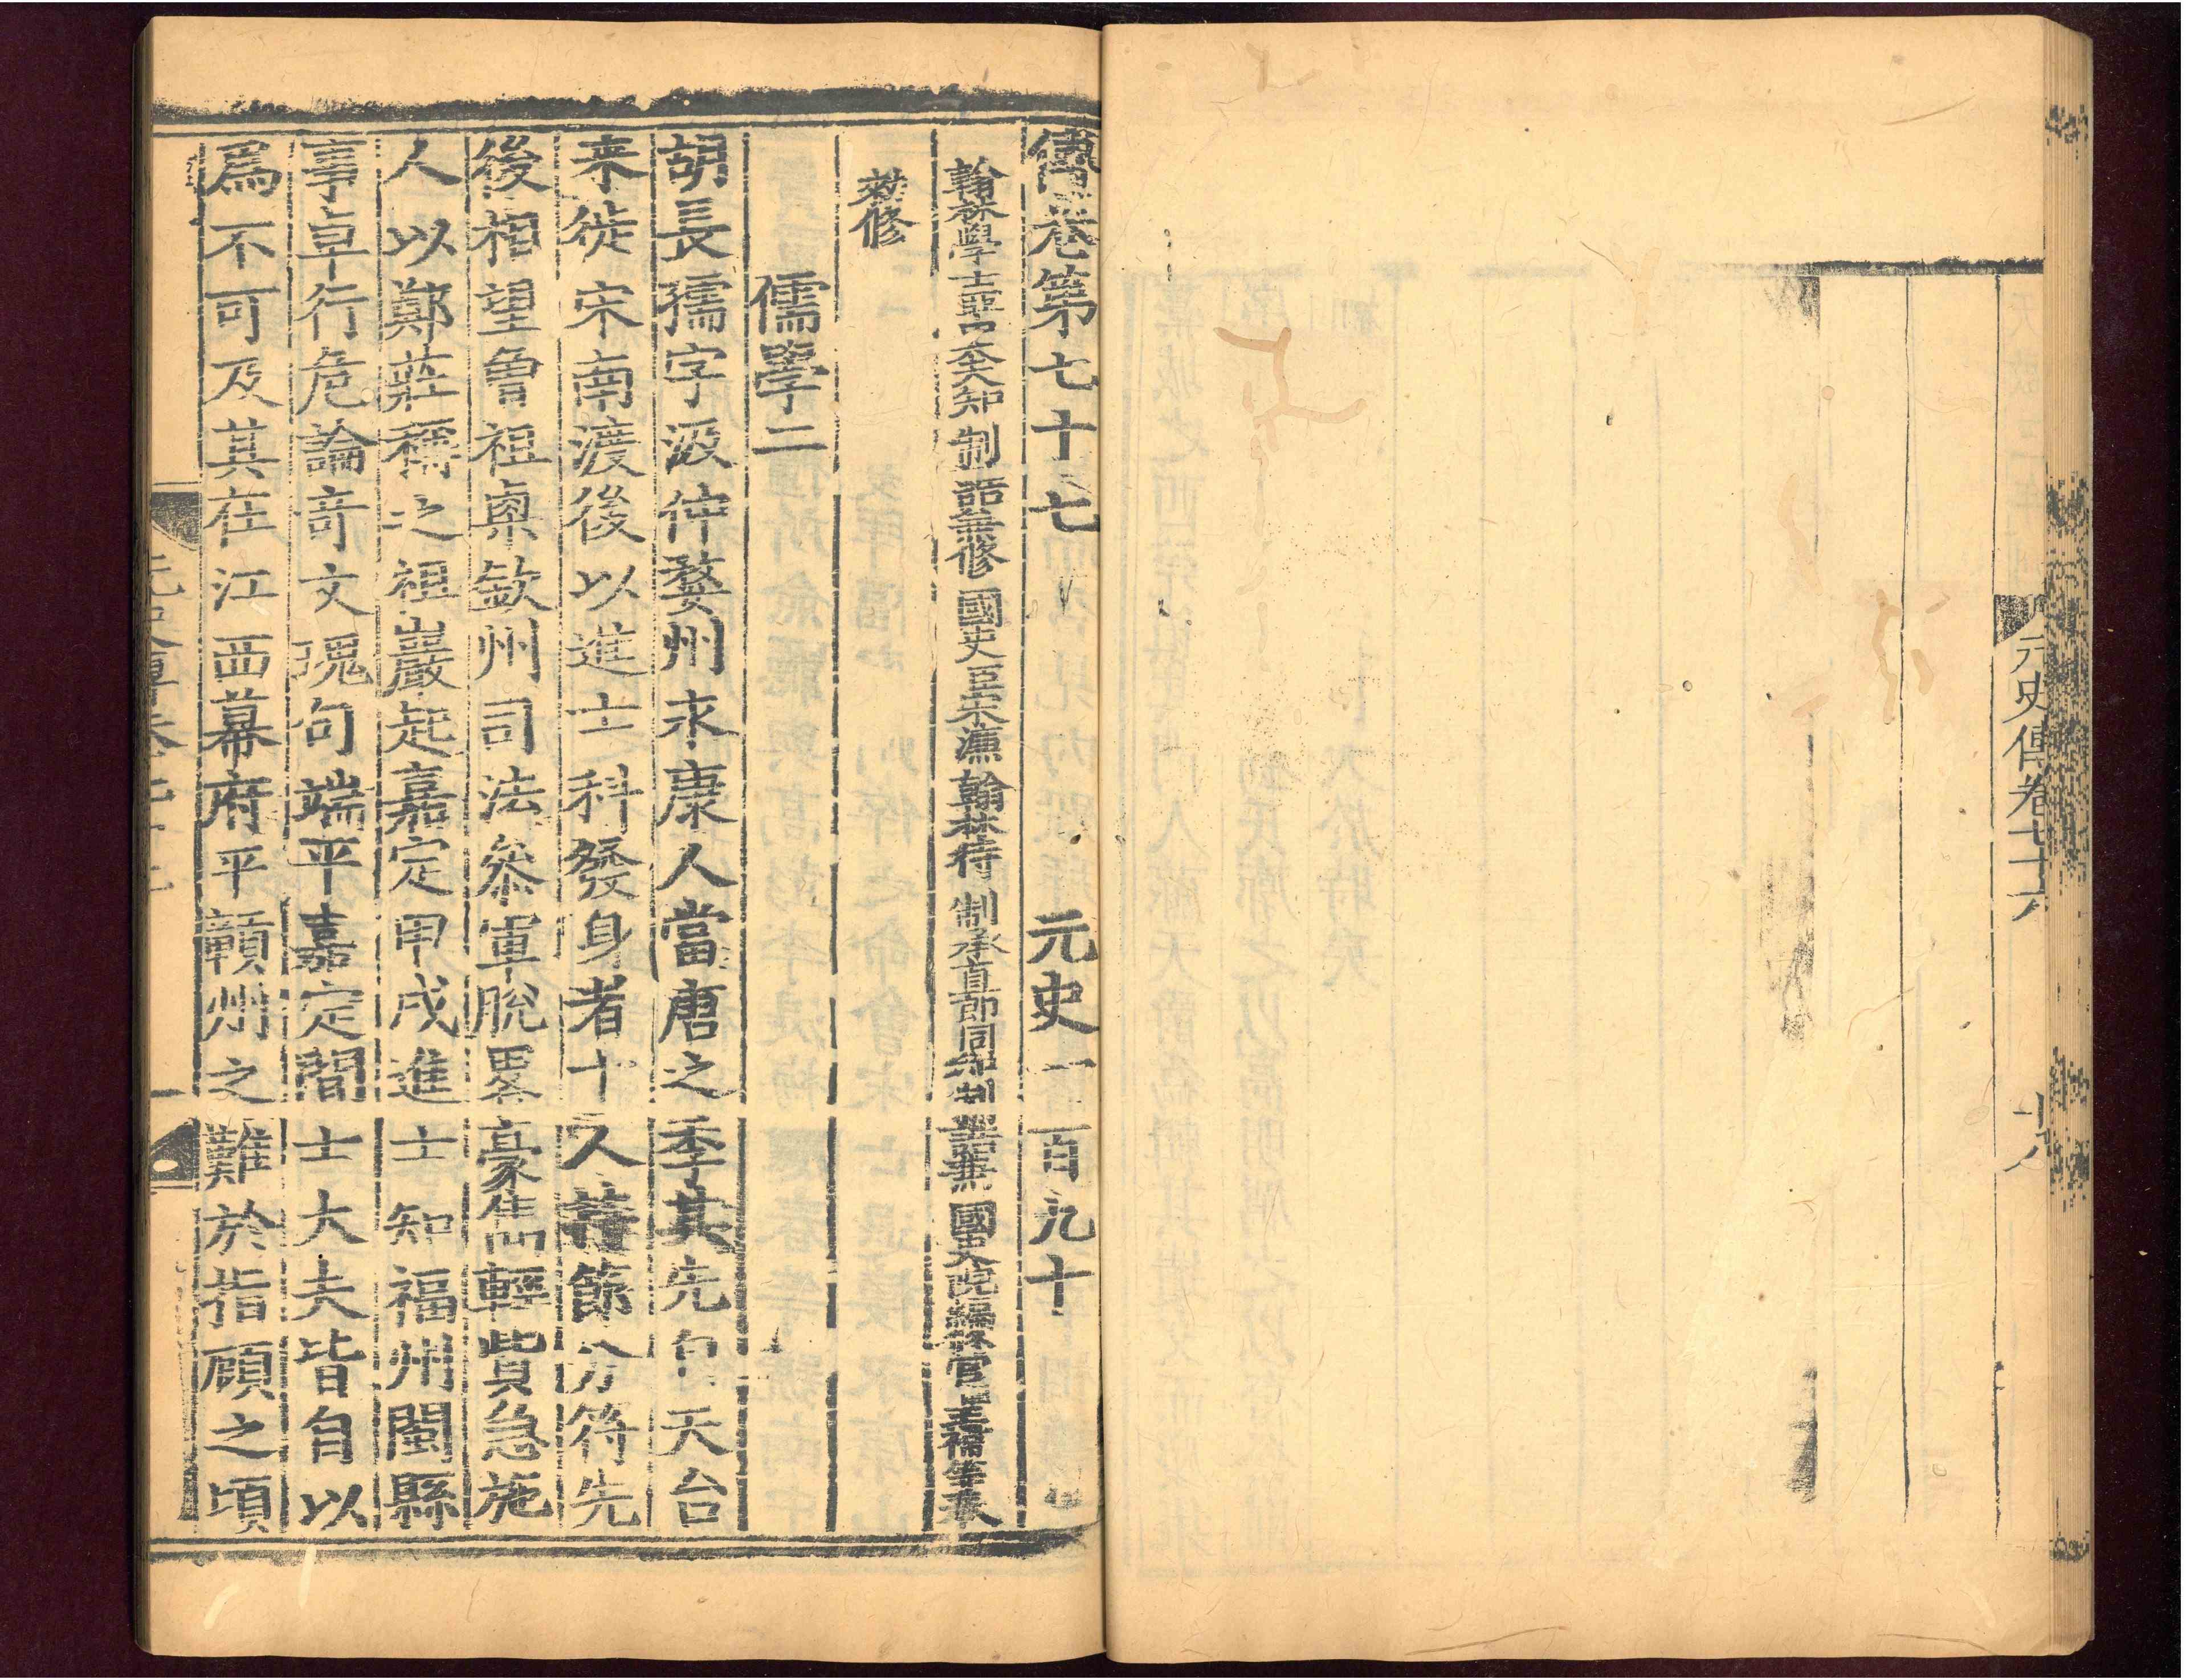 元史傳卷七十六
十八
傳卷第七十七 元史一百九十
翰林學士亞中大夫知 制誥兼修 國史臣宋濂翰林待 制承直郎同知制 誥兼 國史院編修官臣王禕等奉
敕修
儒學二
胡長孺字汲仲婺州永康人當唐之季其先自天台
来徙宋南渡後以進士科發身者十人持節分符先
後相望曾祖㮚欽州司法參軍脫畧豪雋輕貲急施
人以鄭莊稱之祖巖起嘉定甲戌進士知福州閩縣
事卓行危論奇文瑰句端平嘉定間士大夫皆自以
爲不可及其在江西幕府平贑州之難於指顧之頃
元史傳卷七十七
一